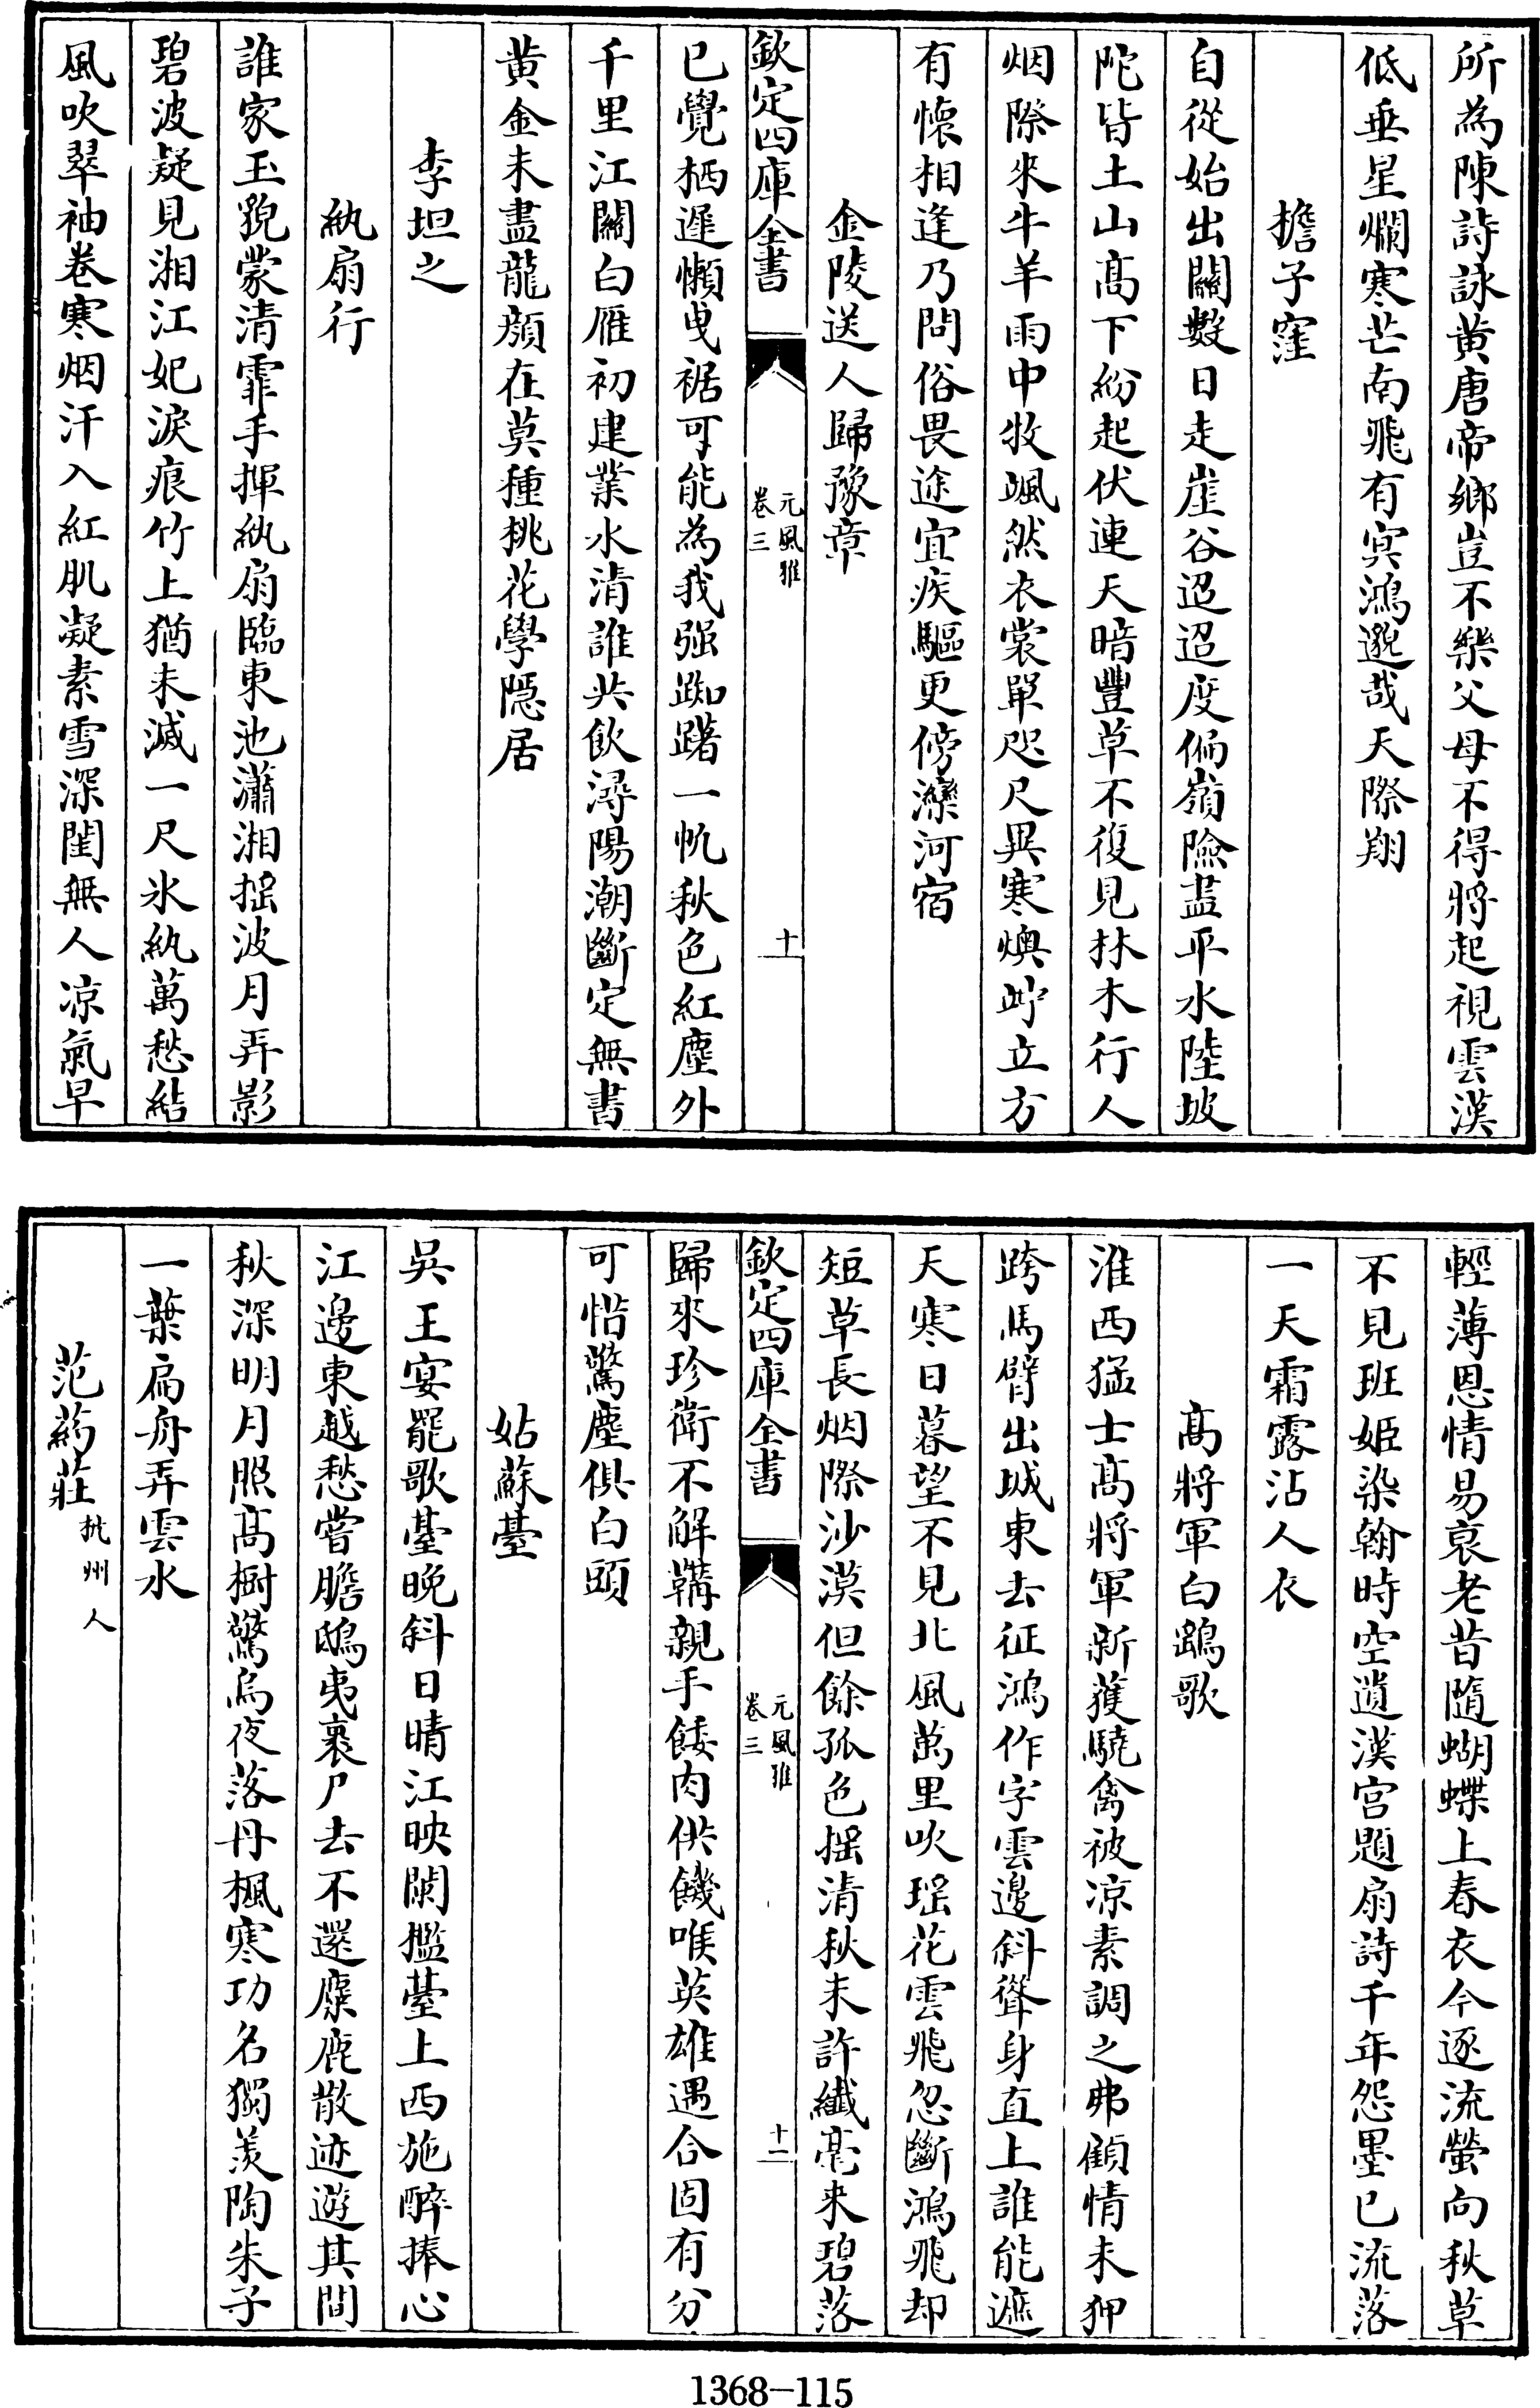 所為陳詩詠黄唐帝鄉豈不樂父母不得將起視雲漢
低垂星爛寒芒南飛有㝠鴻邈哉天際翔
擔子窪
自從始出關數日走崖谷迢迢度偏嶺險盡平水陸坡
陀皆土山髙下紛起伏連天暗豐草不復見林木行人
烟際來牛羊雨中牧颯然衣裳單咫尺異寒燠竚立方
有懷相逢乃問俗畏途宜疾驅更傍灤河宿
金陵送人歸豫章
欽定四庫全書
元風雅
卷三
十
已覺栖遲懶曵裾可能為我强踟躇一帆秋色紅塵外
千里江關白雁初建業水清誰共飲潯陽潮斷定無書
黄金未盡龍顔在莫種桃花學隠居
李坦之
紈扇行
誰家玉貌蒙清霏手揮紈扇臨東池瀟湘揺波月弄影
碧波疑見湘江妃淚痕竹上猶未滅一尺氷紈萬愁結
風吹翠袖卷寒烟汗入紅肌凝素雪深閨無人凉氣早
輕薄恩情易衰老昔隨蝴蝶上春衣今逐流螢向秋草
不見班姬染翰時空遺漢宫題扇詩千年怨墨已流落
一天霜露沾人衣
髙將軍白鷂歌
淮西猛士髙將軍新獲驍禽被凉素調之弗顧情未狎
跨馬臂出城東去征鴻作字雲邊斜聳身直上誰能遮
天寒日暮望不見北風萬里吹瑶花雲飛忽斷鴻飛却
短草長烟際沙漠但餘孤色揺清秋未許纎毫来碧落
欽定四庫全書
元風雅
卷三
十一
歸來珍衛不解鞲親手餧肉供饑喉英雄遇合固有分
可惜驚塵俱白頭
姑蘇臺
吳王宴罷歌臺晚斜日晴江映闌檻臺上西施醉捧心
江邊東越愁嘗膽鴟夷裹尸去不還麋鹿散迹遊其間
秋深明月照髙樹驚烏夜落丹楓寒功名獨羡陶朱子
一葉扁舟弄雲水
范葯莊杭州人
1368—115